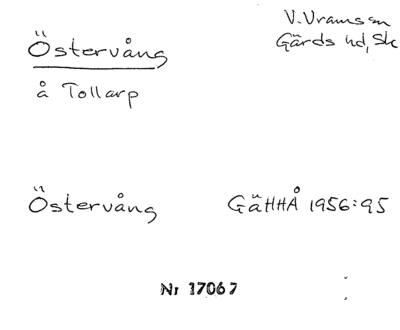 Östervång
V. Vramssn
Gärds hd, Sk
å Tollarp
Östervång GäHHÅ 1956:95
Nr 17067